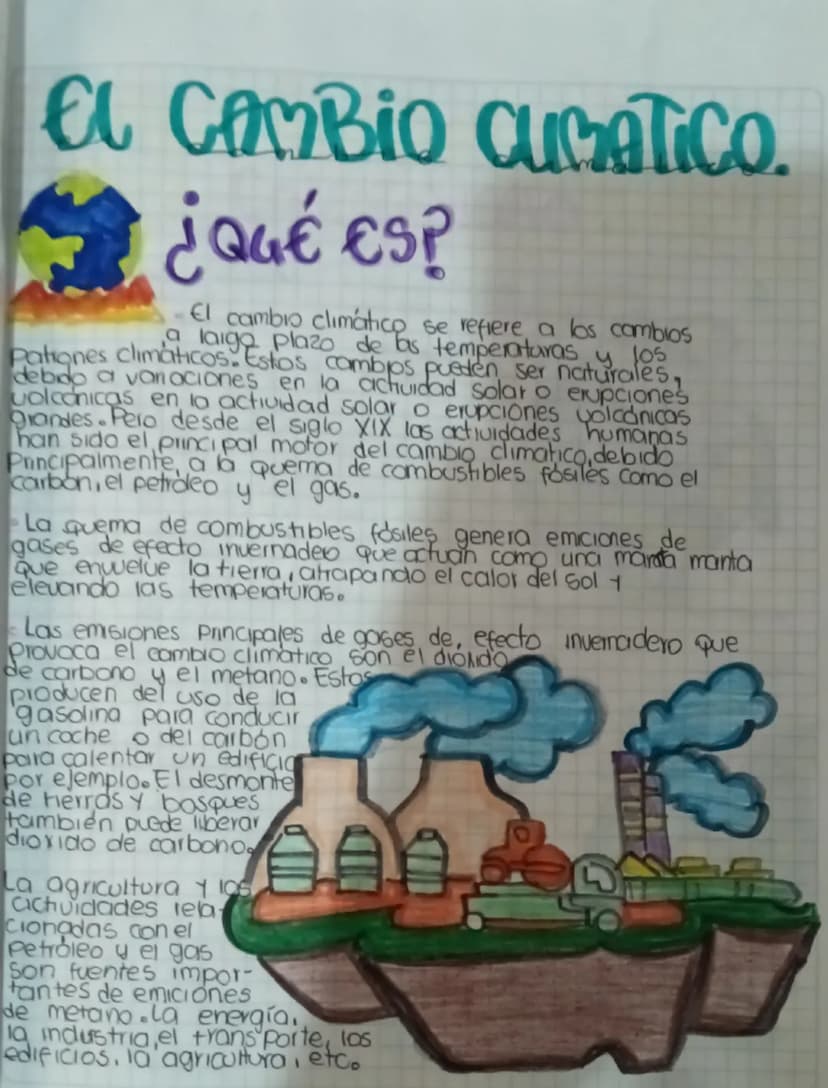 El CAMBiO CLIMATICO.
¿QUÉ ES?
- El cambio climático se refiere a los cambios
a largo plazo de las temperaturas y los
patrones climáticos. Estos cambios pueden ser naturales,
debido a variaciones en la actividad solar o erupciones
volcánicas en la actividad solar o erupciones volcánicas
grandes. Pero desde el siglo XIX las actividades humanas
han sido el principal motor del cambio climatico, debido
Principalmente, a la quema de combustibles fósiles como el
carbón, el petróleo y el gas.
- La quema de combustibles fósiles genera emciones de
gases de efecto invernadero que actuan como una manta manta
que envuelve la tierra, atrapando el calor del sol y
elevando las temperaturas.
- Las emisiones principales de gases de, efecto invernadero que
Provoca el cambio climatico son el dioxido
de carbono y el metano. Estos
producen del uso de la
gasolina para conducir
un coche o del carbón
para calentar un edificio
por ejemplo. El desmonte
de tierras y bosques
también puede liberar
dioxido de carbono.
La agricultura y las
actividades rela-
cionadas con el
petróleo y el gas
son fuentes impor-
tantes de emiciones
de metano. La energía,
la industria, el transporte, los
edificios, la agricultura, etc.